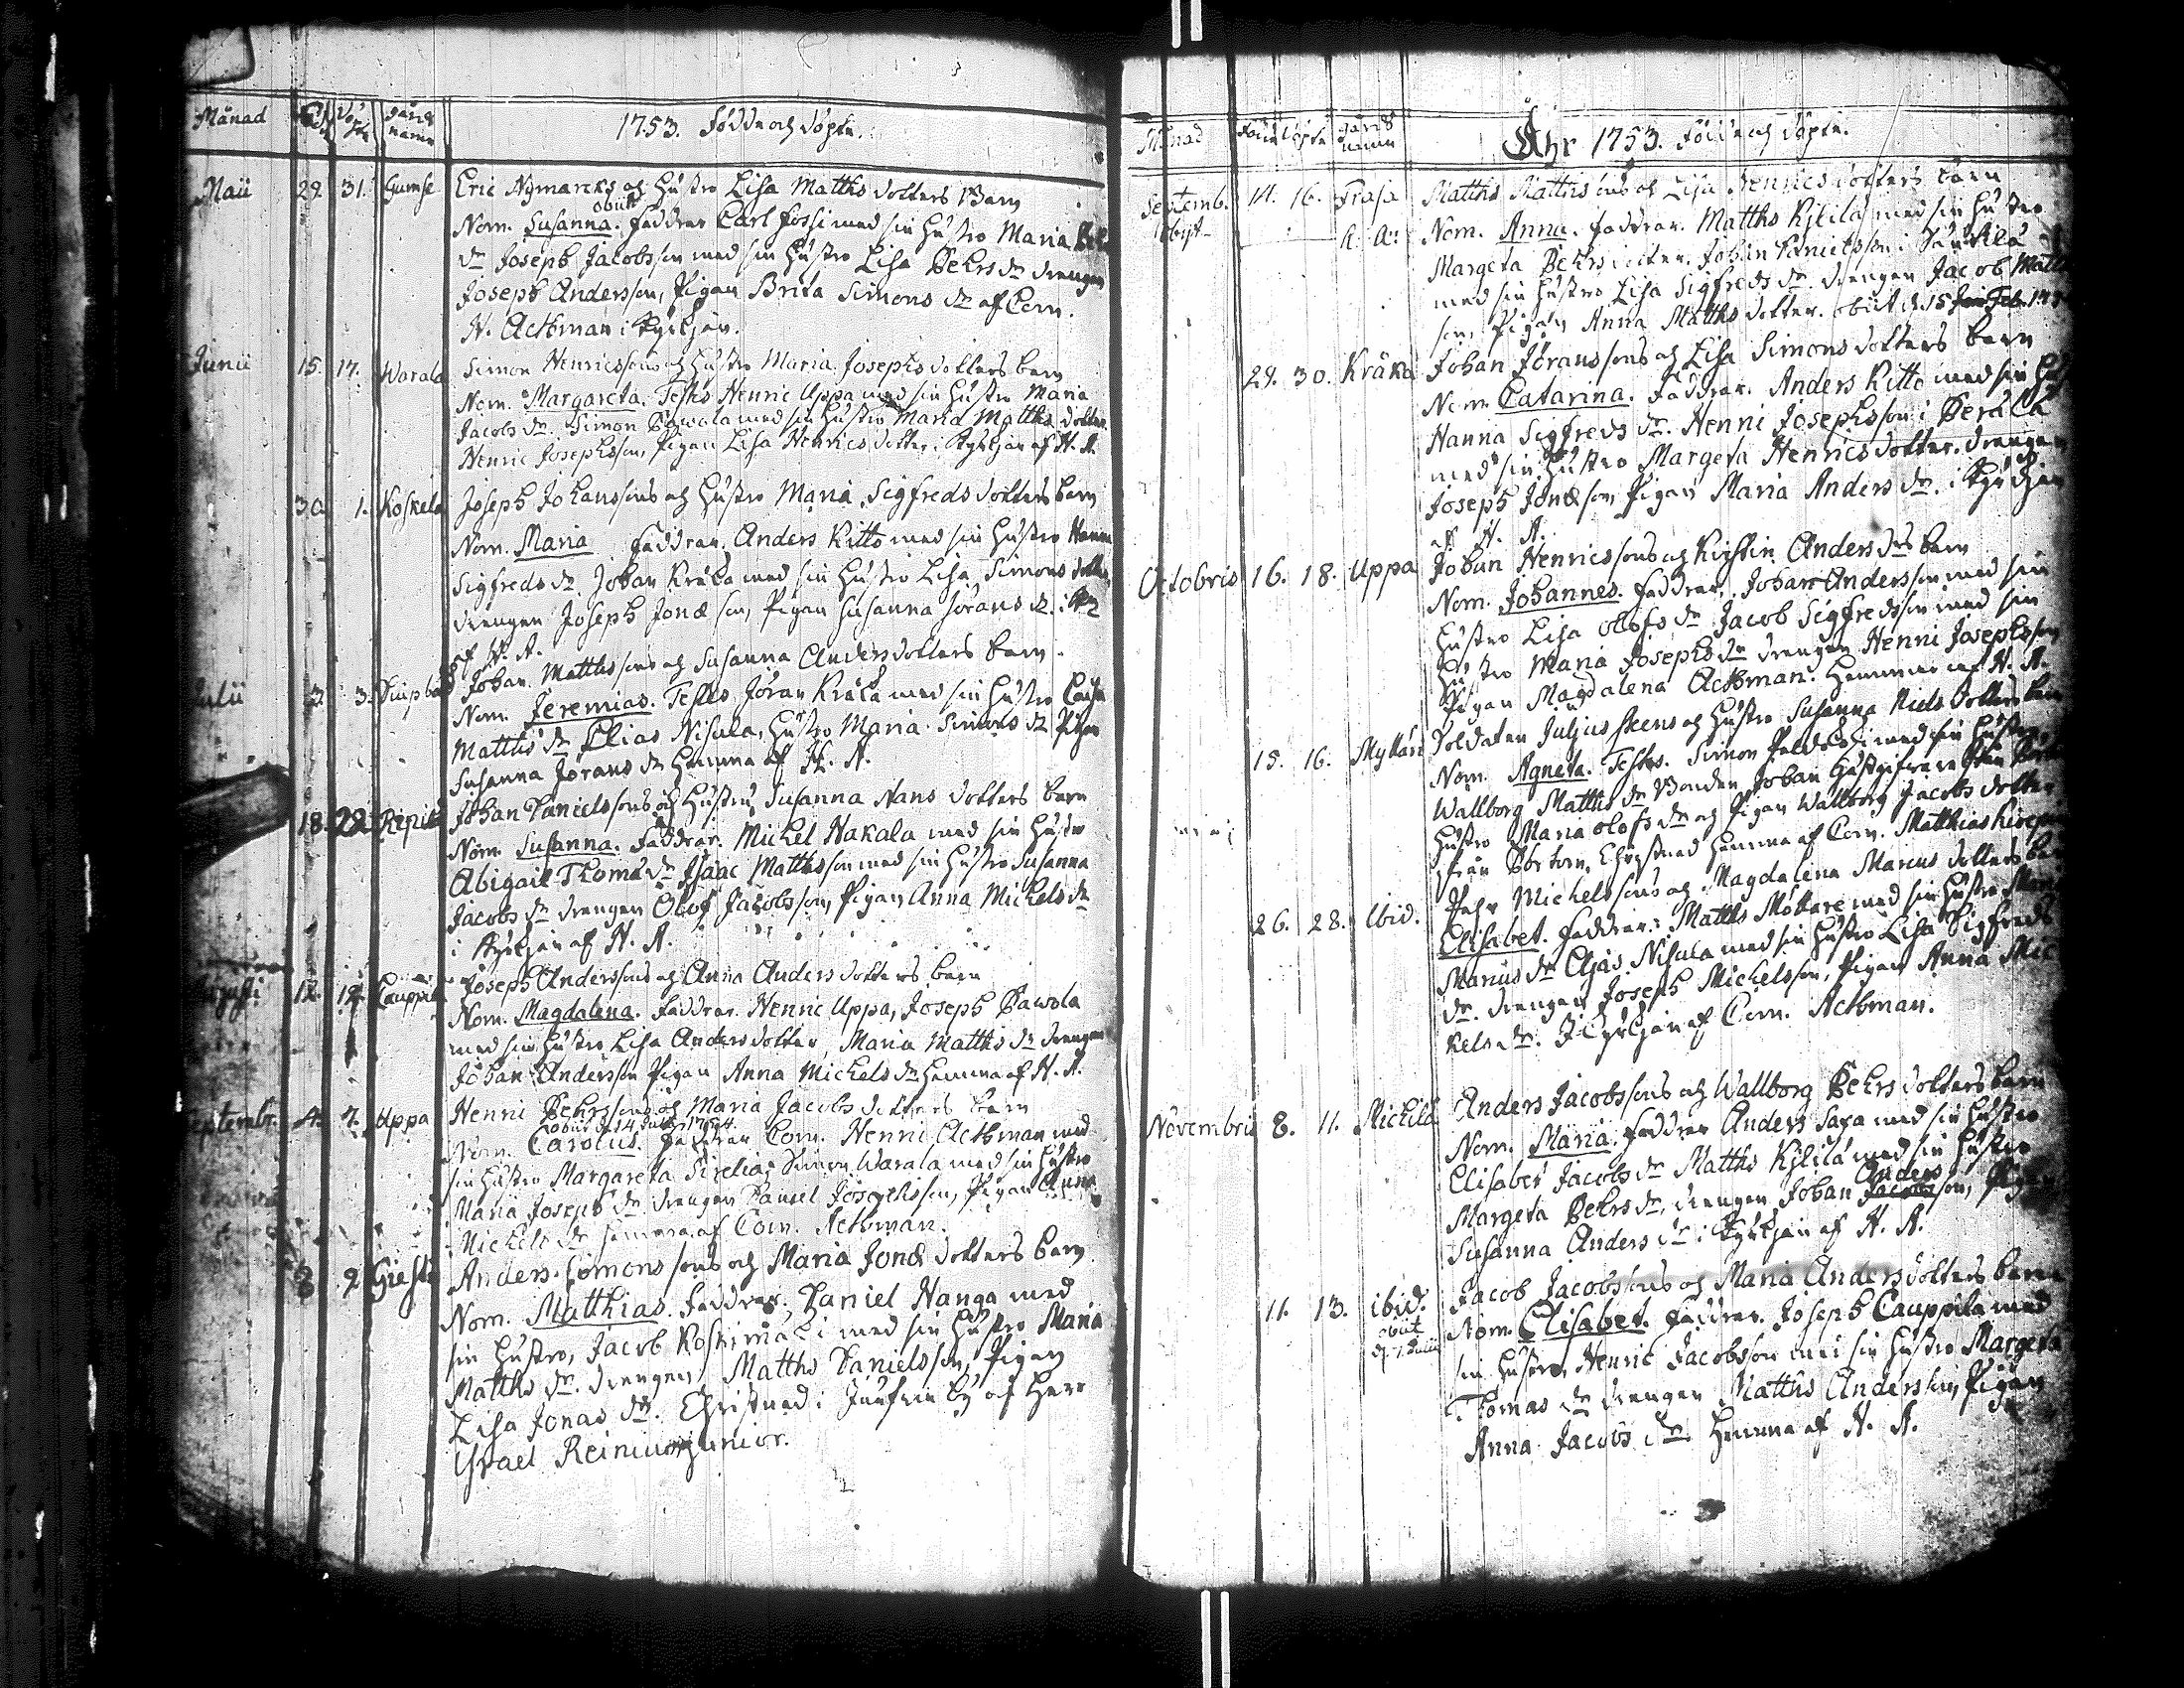 Månad
Döpte
Gårds namn
1753. Födde och döpte.
Maii 29. 31. Gumse Eric Nymarcks och hustro Lisa Matths dotters Barn
obiit
Nom. Susanna. Faddrar Carl Jossi med sin hustro Maria
dr Joseph Jacobsson med sin hustro Lisa Pehrs dr drengen
Joseph Andersson, Pigan Brita Simons dr af Com.
H. Actman i Kyrkjan.
Junii 15. 17. Warala Simon Henricssons och hustro Maria Josephs dotters barn
Nom. Margareta. Testes Henric Uppa med sin hustro Maria
Jacobs dr. Simon Pawola med sin hustro Maria Matths dotter
Henric Josephsson, Pigan Lisa Henrics dotter i Kyrkjan af H. A.
30 1. Koskela Joseph Johanssons och hustro Maria Sigfreds dotters barn
Nom. Maria Faddrar. Anders Kitto med sin hustro Hanna
Sigfreds dr. Johan Kråka med sin hustro Lisa Simons dotter,
drengen Joseph Jonæ son, Pigan Susanna Jörans dr. i
af H. A.
3. 3. Johan Matthssons och Susanna Anders dotters barn.
Nom. Jeremias. Testes Jöran Kråka med sin hustro Caisa
Matths dr Elias Nisula, hustro Maria Simons dr Pigan
Susanna Jörans dr hemma af H. A.
18. 22. Johan Danielssons och hustru Susanna Hans dotters barn
Nom. Susanna. Faddrar. Michel Hakala med sin hustro
Abigail Thomæ dr Isaac Matthsson med sin hustro Susanna
Jacobs dr drengen Olof Jacobsson, Pigan Anna Michels dr
i Kyrkjan af H. A.
12. Cauppila Joseph Anderssons och Anna Anders dotters barn
Nom. Magdalena. Faddrar. Henric Uppa, Joseph Pawola
med sin hustro Lisa Anders dotter, Maria Matths dr drengen
Johan Andersson Pigan Anna Michels dr hemma af H. A.
Septembr. 4. 7. Uppa Henric Pehrssons och Maria Jacobs dotters barn
obiit d. 14 1754.
Nom. Carolus. Faddrar Com. Henric Actman med
sin hustro Margareta Sirelia, Simon Warala med sin hustro
Maria Josephs dr drengen Daniel Josephsson, Pigan Anna
Michels dr hemma af Com. Actman.
8 9 Giesti Anders Simonssons och Maria Jonæ dotters barn
Nom. Matthias. Faddrar. Daniel Hanga med
sin hustro, Jacob Koskimäki med sin hustro Maria
Matths dr. drengen Matths Danielsson, Pigan
Lisa Jonas dr. Christnad i by af Herr
Israel Reinius junior.
Månad
Född
Döpte
Gårds namn
Åhr 1753. Födde och döpte.
Septemb. 14. 16. Frasa Matths Matthssons och Lisa Henrics dotters barn
Nom. Anna. Faddrar. Matths Kylilä med sin hustro
Margeta Pehrs dotter. Johan Danielsson i
med sin hustro Lisa Sigfreds dr. drengen Jacob
son, Pigan Anna Matths dotter. obiit d. 15 Feb.
29. 30. Kråka Johan Jöranssons och Lisa Simons dotters barn
Nom. Catarina. Faddrar. Anders Kitto med sin
Hanna Sigfreds dr. Henric Josephsson i Perälä
med sin hustro Margeta Henrics dotter. drengen
Joseph Jonæ son, Pigan Maria Anders dr. i Kyrkjan
af H. A.
Octobris 16. 18. Uppa Johan Henricssons och Kirstin Anders drs barn
Nom. Johannes. Faddrar. Johan Andersson med sin
hustro Lisa Olofs dr Jacob Sigfredsson med sin
hustro Maria Josephs dr drengen Henric Josephsson
Pigan Magdalena Actman. Hemma af H. A.
15. 16. Soldaten Julius Steens och hustro Susanna Niels dotters barn
Nom. Agneta. Testes. Simon med sin hustro
Wallborg Matths dr Bonden Johan
hustro Maria Olofs dr och Pigan Wallborg Jacobs dotter
från Portom, Christnad hemma af Com. Matthias
26. 28. Ibid. Pehr Michelssons och Magdalena Marcus dotters
Elisabet. Faddrar: Matths med sin hustro
Marcus dr Elias Nisula med sin hustro Lisa Sigfreds
dr. drengen Joseph Michelsson, Pigan Anna Mic
kels dr. i Kyrkjan af Com. Actman.
Novembris 8. 11. Michilä Anders Jacobssons och Wallborg Pehrs dotters barn
Nom. Maria. Faddrar Anders Saxa med sin hustro
Elisabet Jacobs dr Matths Kylilä med sin hustro
Anders
Margeta Pehrs dr, drengen Johan Jacobsson, Pigan
Susanna Anders dr i Kyrkjan af H. A.
11. 13. ibid. Jacob Jacobssons och Maria Anders dotters barn
obiit
Nom. Elisabet. Faddrar. Joseph Cauppila med
sin hustro, Henric Jacobsson med sin hustro Margeta
Thomas dr drengen Matths Andersson, Pigan
Anna Jacobs dr. Hemma af H. A.